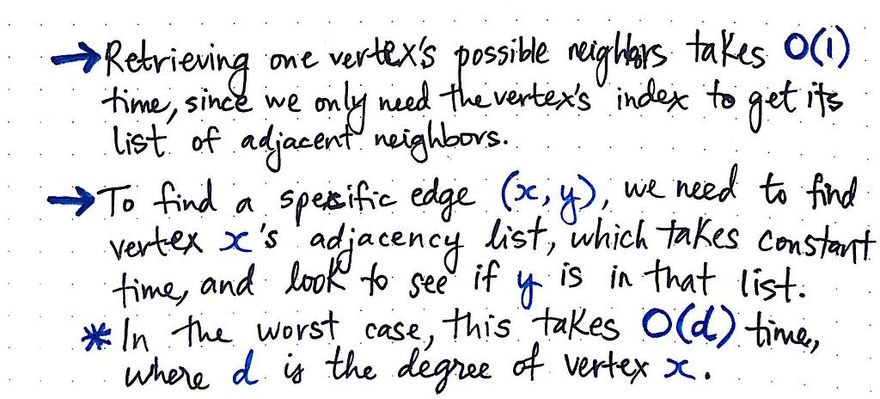 → Retrieving one vertex's possible neighbors takes O(1)
time, since we only need the vertex's index to get its
list of adjacent neighbors.
→ To find a specific edge (x, y), we need to find
vertex x's adjacency list, which takes constant
time, and look to see if y is in that list.
* In the worst case, this takes O(d) time,
where d is the degree of vertex x.